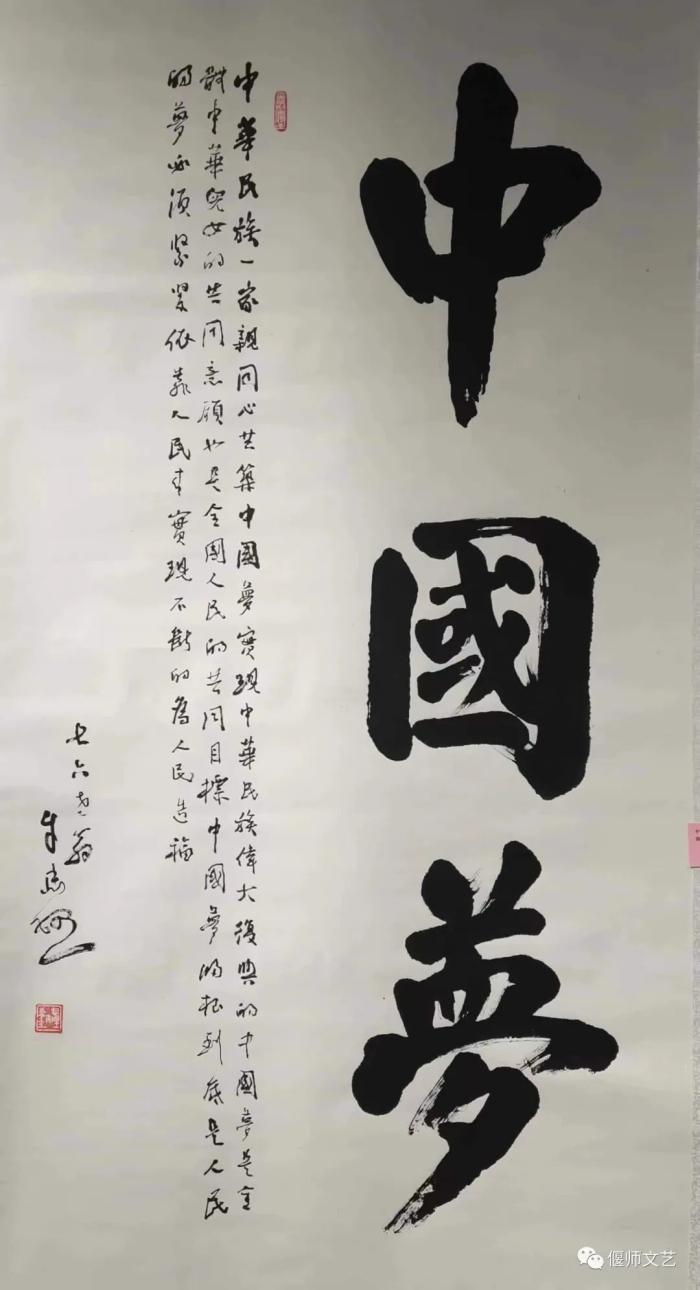 中國夢
中華民族一家親同心共築中國夢實現中華民族偉大復興的中國夢是全
體中華兒女的共同意願也是全國人民的共同目標中國夢歸根到底是人民
的夢必須緊緊依靠人民來實現不斷的為人民造福
七六老翁
偃师文艺